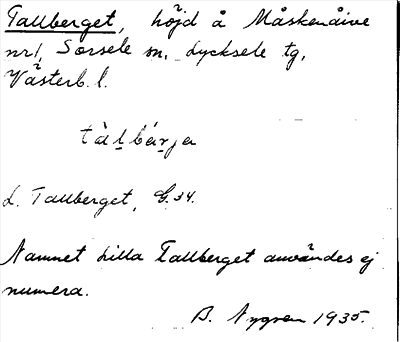 Tallberget, höjd å Måskenåive
nr 1, Sorsele sn. Lycksele tg,
Västerb. l.
tàl̠bár̠ja
L. Tallberget, G. 34.
Namnet Lilla Tallberget användes ej
numera.
B. Nygren 1935.